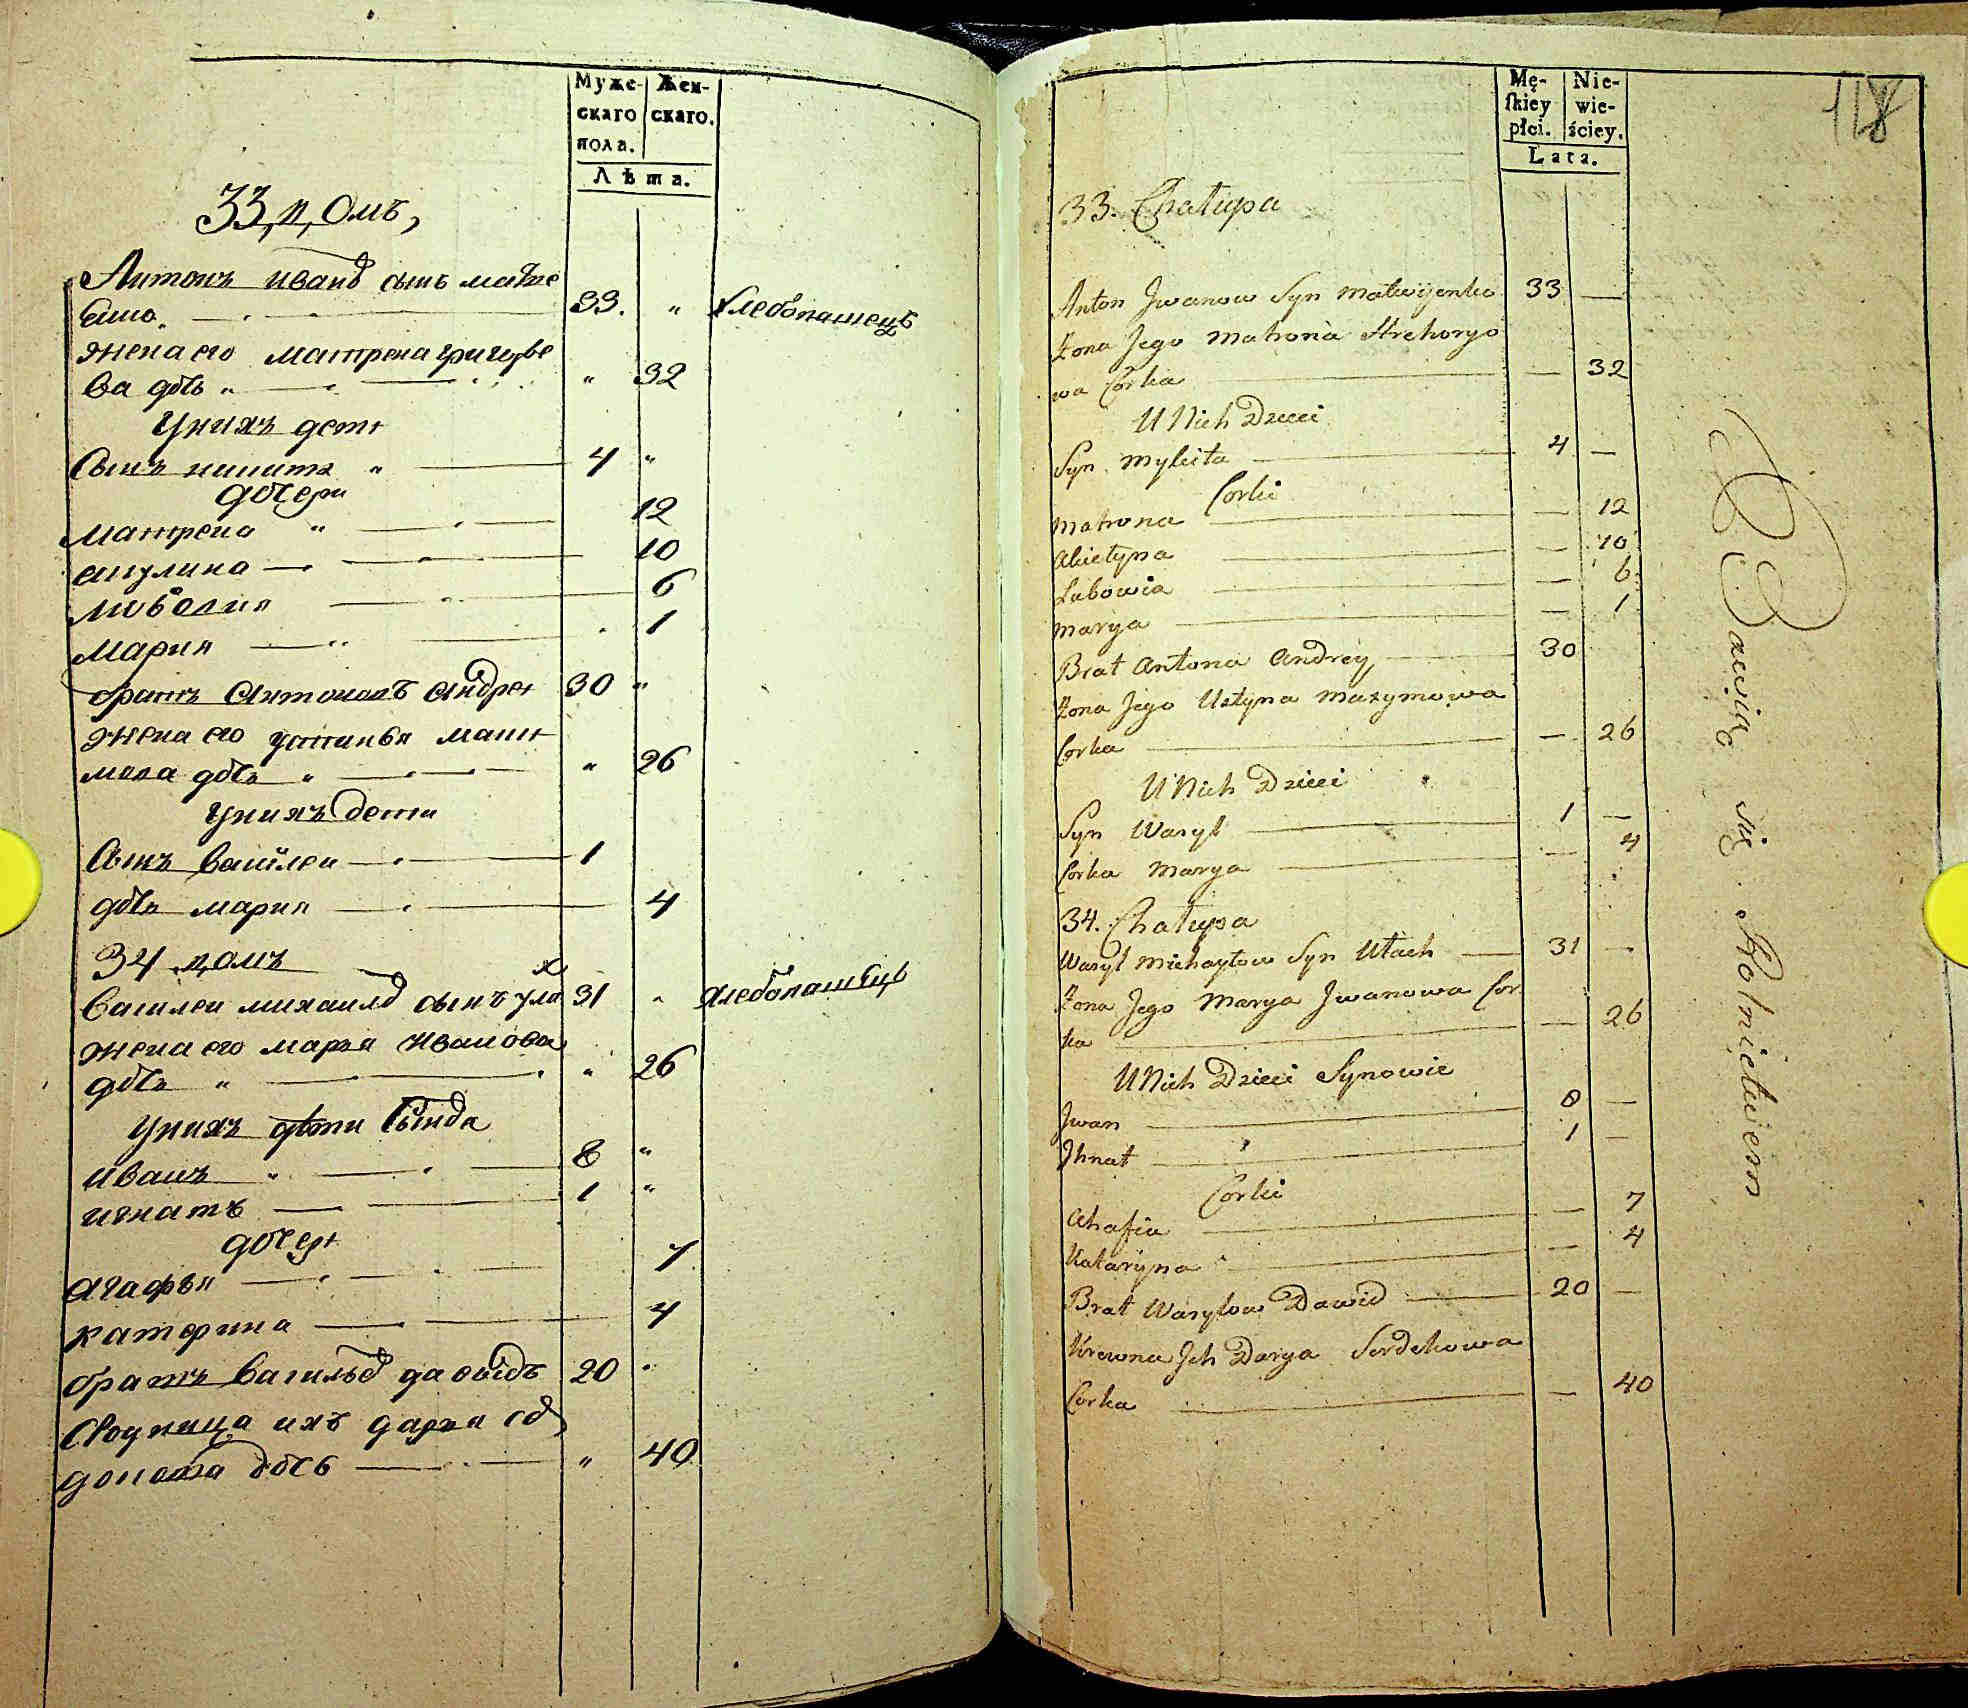 Муже-
скаго
пола.
Жен-
скаго.
Лѣта.
33, домъ,
Антонъ иванв сынъ матве
енко 33. " хлебопашецъ
жена его матрена григорье
ва дочь " " 32
У нихъ дети
Сынъ никита " 4 "
дочери
матрена " 12
акулина 10
любовия 6
Мария 1
братъ Антоновъ андреи 30 "
жена его устинья макси
мова дочь " " 26
У нихъ дети
Сынъ василеи 1
дочь мария 4
34 домъ
василеи михаилв сынъ улах 31 " хлебопашецъ
жена его марья иванова
дочь " " 26
У нихъ дети сыновя
иванъ " 8 "
игнатъ 1 "
дочери
агафья 7
катерина 4
братъ василев давидъ 20 "
дарья
дочь " 40
Mę-
skiey
płci.
Nie-
wie-
ściey.
Lata.
118
33. Chałupa
Anton Jwanow Syn Matwijenko 33 —
Żona Jego Matrona Hrehoryo
wa Corka — 32
U Nich Dzieci
Syn Mykita 4 —
Corki
Matrona — 12
Akietyna — 10
Lubowia — 6
Marya — 1
Brat Antona Andrey 30
Żona Jego Ustyna Maxymowa
Corka — 26
U Nich Dzieci
Syn Wasyl 1 —
Corka Marya — 4
34. Chałupa
Wasyl Michayłow Syn Ułach 31 —
Żona Jego Marya Jwanowa Cor
ka — 26
U Nich Dzieci Synowie
Jwan 8 —
Jhnat 1 —
Corki
Ahafia — 7
Kataryna — 4
Brat Wasylow Dawid 20 —
Krewna Jch Darya Serdekowa
Corka — 40
Bawią się Rolnictwem